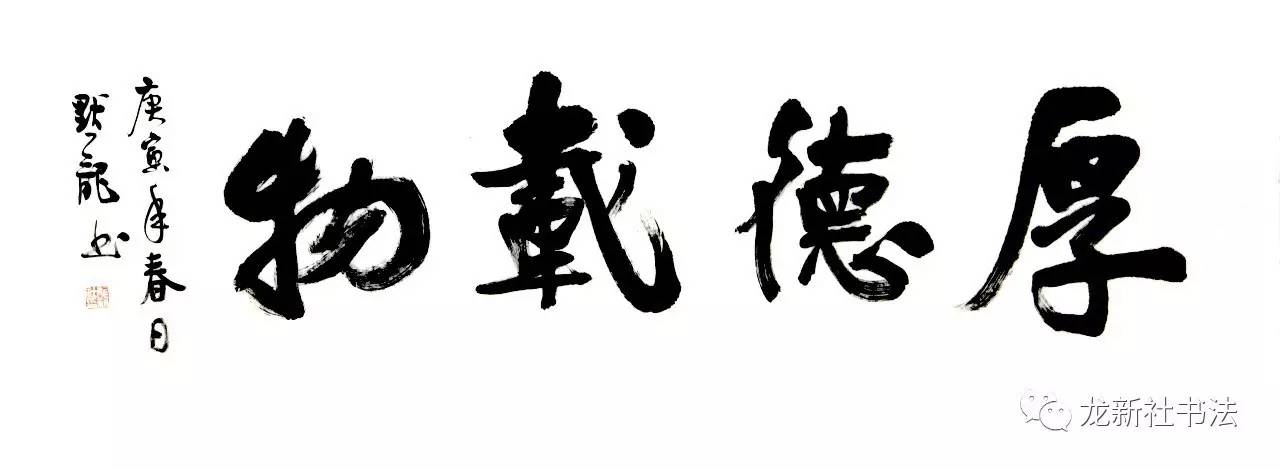 厚德載物
庚寅年春日
默龍书
龙新社书法